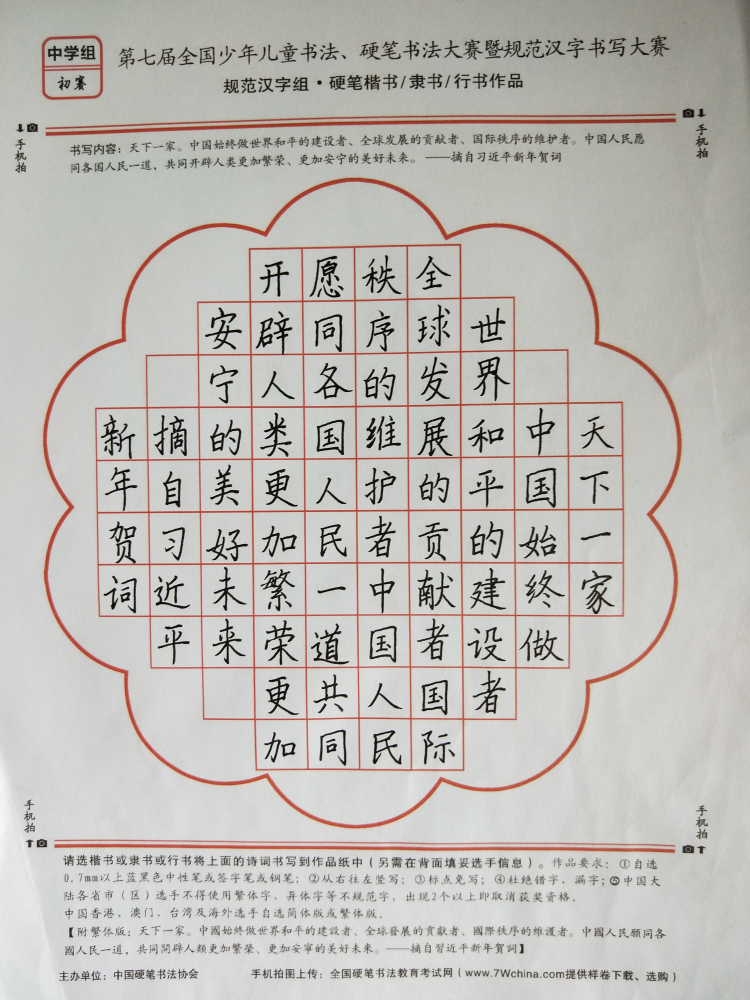 中学组
初赛
第七届全国少年儿童书法、硬笔书法大赛暨规范汉字书写大赛
规范汉字组·硬笔楷书/隶书/行书作品
手机拍
手机拍
书写内容：天下一家。中国始终做世界和平的建设者、全球发展的贡献者、国际秩序的维护者。中国人民愿
同各国人民一道，共同开辟人类更加繁荣、更加安宁的美好未来。 ——摘自习近平新年贺词
天下一家
中国始终做
世界和平的建设者
全球发展的贡献者国际
秩序的维护者中国人民
愿同各国人民一道共同
开辟人类更加繁荣更加
安宁的美好未来
摘自习近平
新年贺词
手机拍
手机拍
请选楷书或隶书或行书将上面的诗词书写到作品纸中（另需在背面填妥选手信息）。作品要求：①自选
0.7mm以上蓝黑色中性笔或签字笔或钢笔；②从右往左竖写；③标点免写；④杜绝错字、漏字；⑤中国大
陆各省市（区）选手不得使用繁体字、异体字等不规范字，出现2个以上即取消获奖资格，
中国香港、澳门、台湾及海外选手自选简体版或繁体版。
【附繁体版：天下一家。中國始終做世界和平的建設者、全球發展的貢獻者、國際秩序的維護者。中國人民願同各
國人民一道，共同開辟人類更加繁榮、更加安寧的美好未來。——摘自習近平新年賀詞】
主办单位：中国硬笔书法协会
手机拍图上传：全国硬笔书法教育考试网（www.7Wchina.com提供样卷下载、选购）